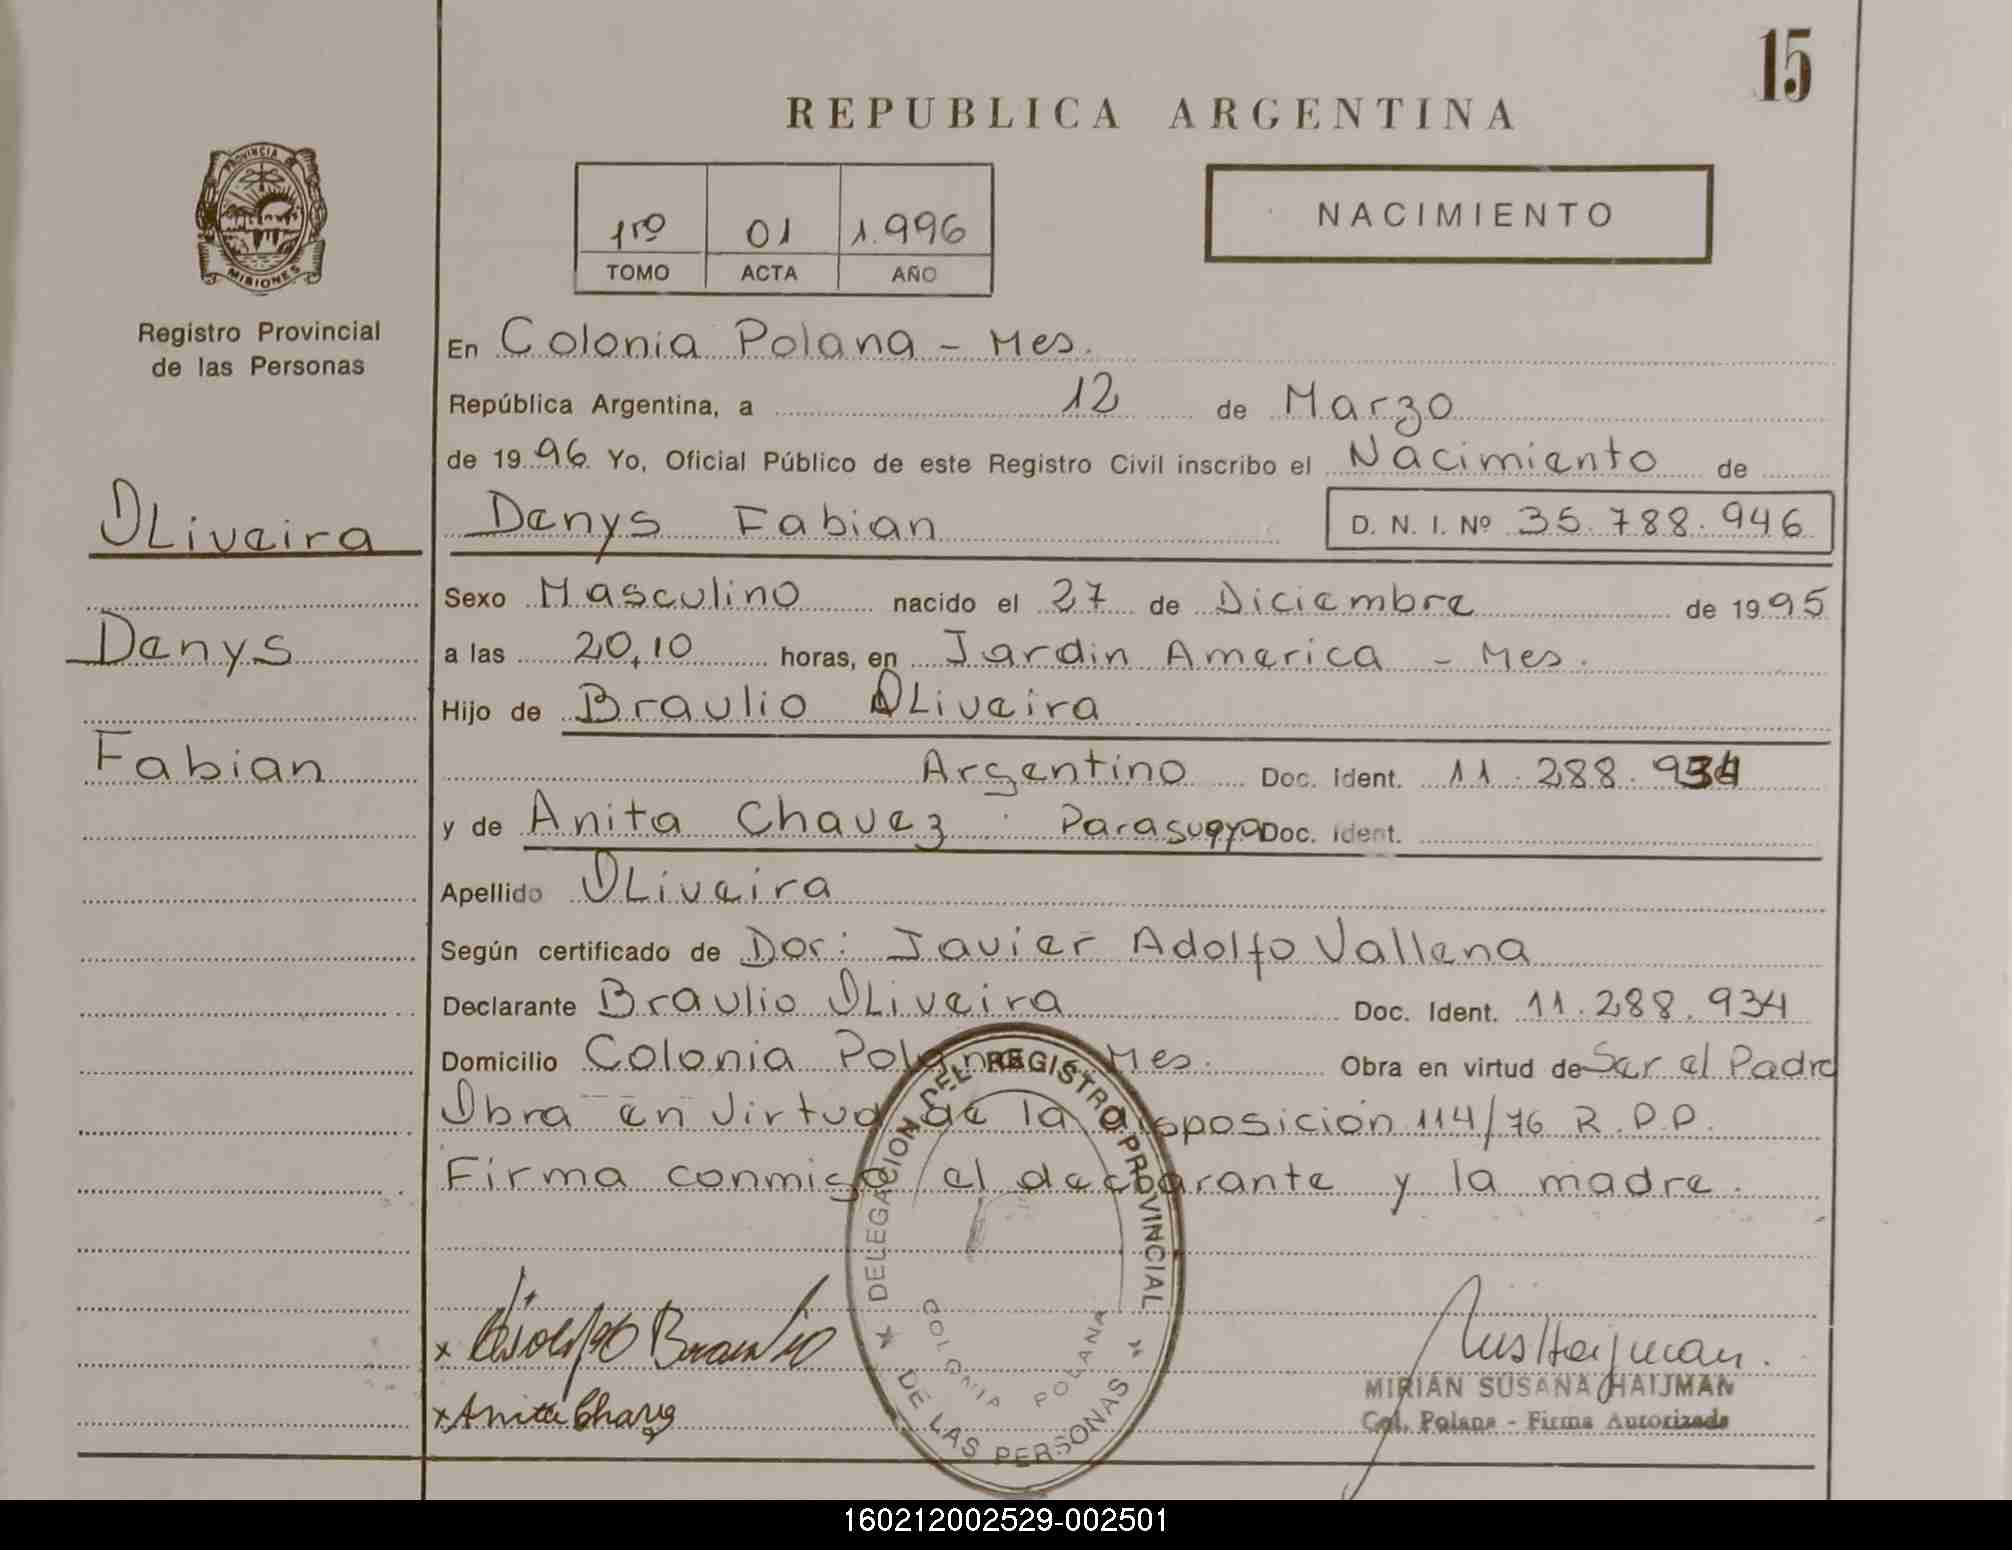 15
REPUBLICA ARGENTINA
PROVINCIA DE
MISIONES
Registro Provincial
de las Personas
1ro 01 1.996
TOMO ACTA AÑO
NACIMIENTO
En Colonia Polana - Mes.
República Argentina, a 12 de Marzo
de 1996 Yo, Oficial Público de este Registro Civil inscribo el Nacimiento de
OLiveira Denys Fabian D. N. I. Nº 35.788.946
Sexo Masculino nacido el 27 de Diciembre de 1995
Denys
a las 20,10 horas, en Jardin America - Mes.
Hijo de Braulio OLiveira
Fabian
Argentino Doc. Ident. 11.288.934
y de Anita Chavez Paraguaya Doc. Ident.
Apellido OLiveira
Según certificado de Dor: Javier Adolfo Vallena
Declarante Braulio OLiveira Doc. Ident. 11.288.934
Domicilio Colonia Polana - Mes. Obra en virtud de Ser el Padre
Obra en virtud de la disposición 114/76 R.P.P.
Firma conmigo el declarante y la madre.
DELEGACION DEL REGISTRO PROVINCIAL
DE LAS PERSONAS
COLONIA POLANA
x Braulio
x Anita Chavez
MIRIAN SUSANA HAIJMAN
Col. Polana - Firma Autorizada
160212002529-002501